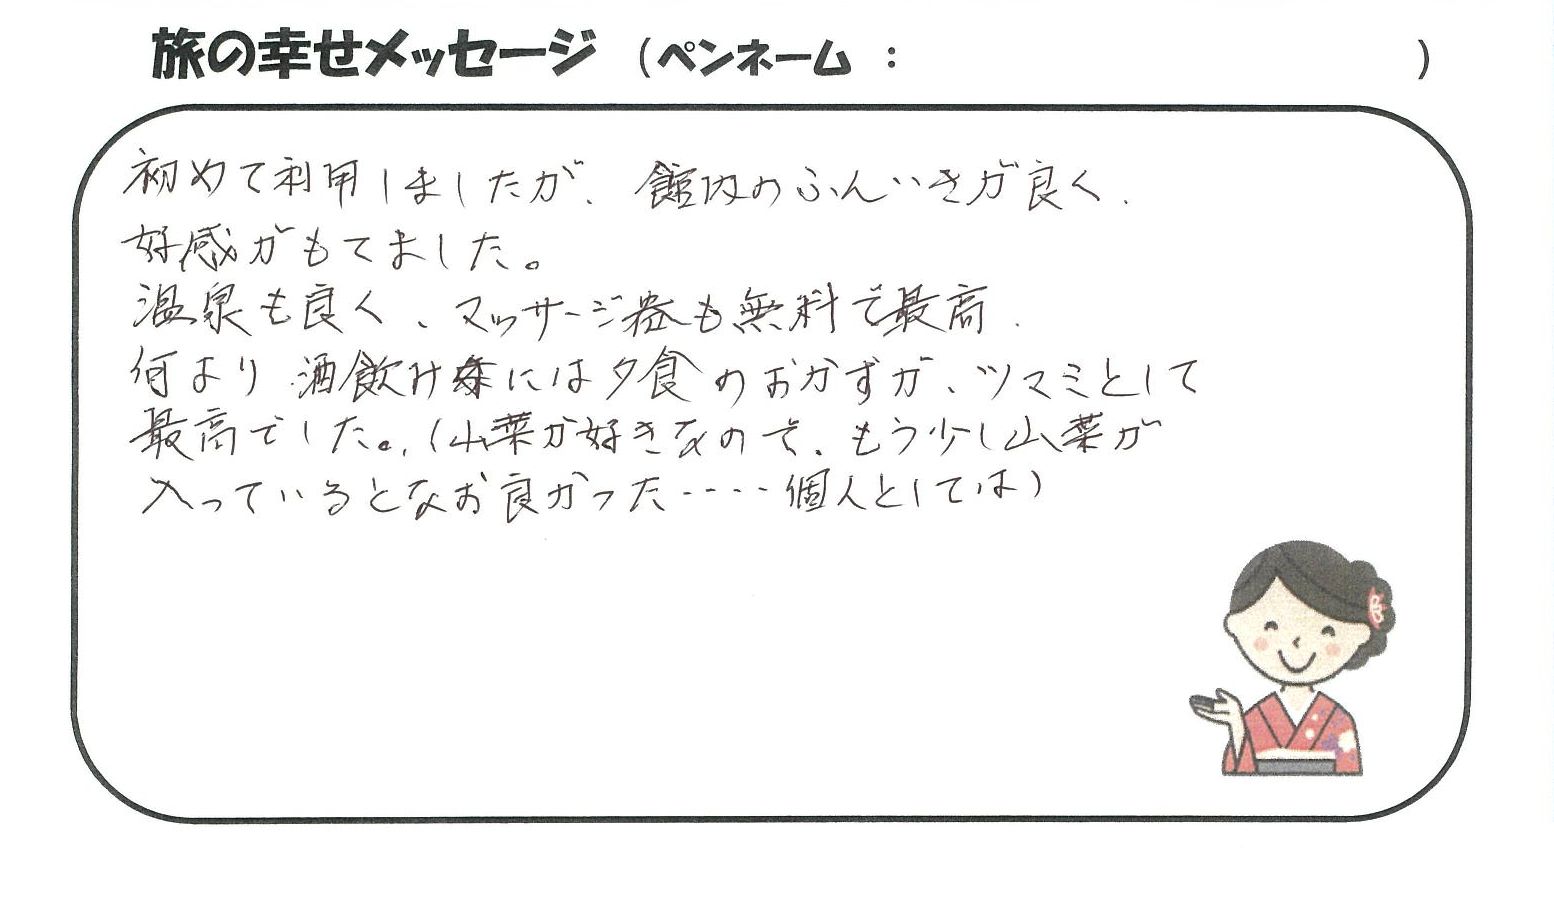 旅の幸せメッセージ （ペンネーム ： ）
初めて利用しましたが、館内のふんいきが良く、
好感がもてました。
温泉も良く、マッサージ器も無料で最高、
何より酒飲みには夕食のおかずが、ツマミとして
最高でした。（山菜が好きなので、もう少し山菜が
入っているとなお良かった‥‥個人としては）